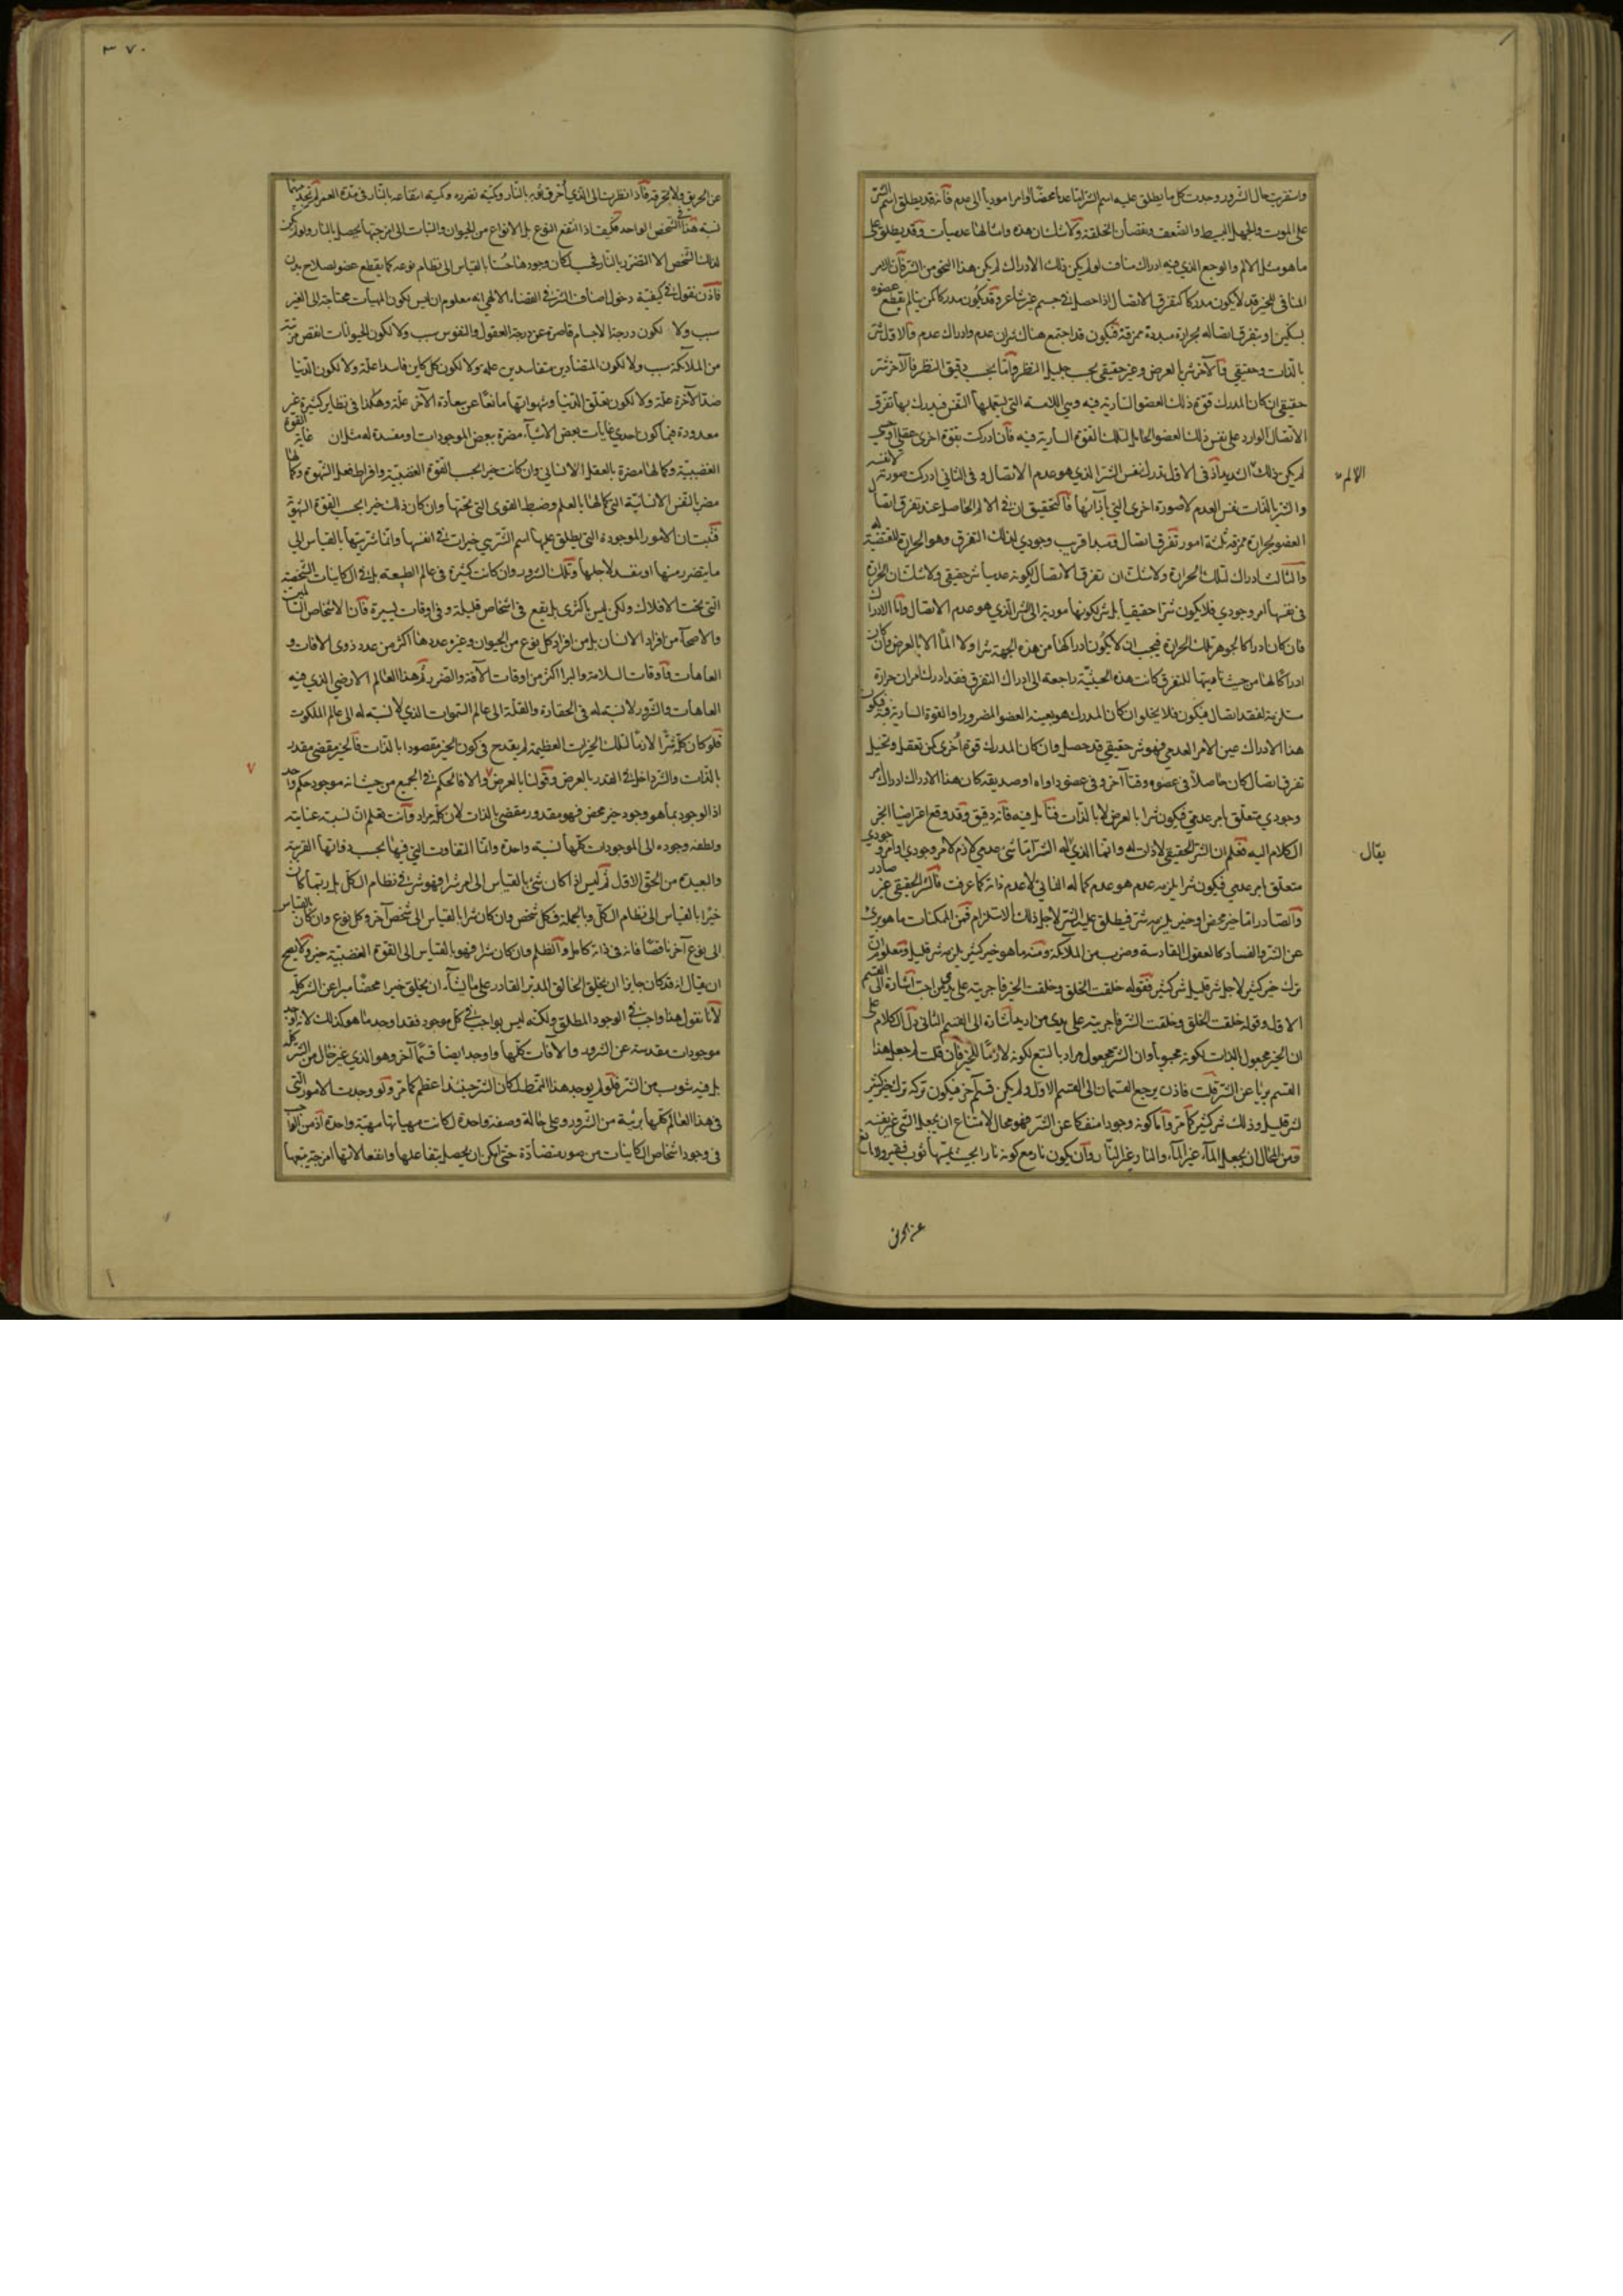 واستقريت حال الشرور وجدت كل ما يطلق عليه اسم الشر اما عدما محضا او امرا موديا الى عدم فانه قد يطلق اسم الشر
على الموت والجهل البسيط والضعف ونقصان الخلقة ولا شك ان هذه وامثالها عدميات وقد يطلق على
ما هو مثل الالم والوجع الذي فيه ادراك مناف لو لم يكن ذلك الادراك لم يكن هذا النحو من الشر فان الامر
المنافي للخير قد لا يكون مدركا كتفرق الاتصال اذا حصل في جسم غير شاعر وقد يكون مدركا كمن يتالم بقطع عضوه
بسكين او بتفرق اتصاله بحرارة مبددة ممزقة فيكون قد اجتمع هناك شران عدم وادراك عدم فالاول شر
بالذات وحقيقي والآخر شر بالعرض وغير حقيقي بحسب جليل النظر واما بحسب دقيق النظر فالآخر شر
حقيقي ان كان المدرك قوة ذلك العضو السارية فيه وهي اللامسة التي يستعملها النفس فيدرك بها تفرق
الاتصال الوارد على نفس ذلك العضو الحامل لتلك القوة السارية فيه فان ادركت بقوة اخرى عقلي او حسي
لم يكن ذلك الشديد اذ في الاول تدرك نفس الشر الذي هو عدم الاتصال وفي الثاني ادركت صورته لا نفسه
الالم
والشر بالذات نفس العدم لا صورة اخرى التي بازائها فالتحقيق ان في الالم الحاصل عند تفرق اتصال
العضو بحرارة ممزقة ثلثة امور تفرق اتصال ومبدا قريب وجودي لذلك التفرق وهو الحرارة المقتضية له
والثالث ادراك لتلك الحرارة ولا شك ان تفرق الاتصال لكونه عدميا شر حقيقي ولا شك ان الحرارة
في نفسها امر وجودي فلا يكون شرا حقيقيا بل شر لكونها مودية الى الشر الذي هو عدم الاتصال واما الادراك
فان كان ادراكا لجوهر تلك الحرارة فيجب ان لا يكون ادراكها من هذه الجهة شرا ولا الما الا بالعرض وان كان
ادراكا لها من حيث تاديتها للتفرق كانت هذه الحيثية راجعة الى ادراك التفرق فقد ادرك امران حرارة
مستلزمة لفقد اتصال فيكون فلا يخلو ان كان المدرك هو بعينه العضو المضرور او القوة السارية فيه فيكون
هذا الادراك عين الامر العدمي فهو شر حقيقي قد حصل وان كان المدرك قوة اخرى كمن تعقل وتخيل
تفرق اتصال كان حاصلا في عضوه وقتا آخر وفي عضو داواه او صديقه كان هذا الادراك ادراك امر
وجودي متعلق بامر عدمي فيكون شرا بالعرض لا بالذات فتامل فيه فانه دقيق وقد وقع اعتراضيا انجر
الكلام اليه فعلم ان الشر الحقيقي لا ذات له وانما الذي يقال له الشر اما شيء عدمي لازم لامر وجودي او امر وجودي
يقال
متعلق بامر عدمي فيكون شرا يلزمه عدم هو عدم كماله الثاني لا عدم ذاته كما عرفت فالشر الحقيقي غير صادر
والصادر اما خير محض او خير يلزمه شر فيطلق عليه الشر لاجل ذلك الاستلزام فمن الممكنات ما هو بريء
عن الشر والفساد كالعقول القادسة وضرب من الملائكة ومنه ما هو خير كثير يلزمه شر قليل ومعلوم ان
ترك خير كثير لاجل شر قليل شر كثير فقوله خلقت الخلق وخلقت الخير فاجريته على يدي من احب اشارة الى القسم
الاول وقوله خلقت الخلق وخلقت الشر فاجريته على يدي من اريد اشارة الى القسم الثاني دل الكلام على
ان الخير مجعول بالذات لكونه محبوبا وان الشر مجعول مراد بالتبع لكونه لازما للخير فان قلت لم جعل هذا
القسم بريا عن الشر قلت فاذن يرجع القسمان الى القسم الاول ولم يكن قسم آخر فيكون تركه ترك خير كثير
لشر قليل وذلك شر كثير كما مر واما كونه وجودا منفكا عن الشر فهو محال لامتناع ان يجعل الشيء غير نفسه
ومن المحال ان يجعل الماء غير الماء والنار غير النار وان يكون نار مع كونه نارا بحيث يمسها ثوب فقير ومانع
عن الحريق
٣٧٠
عن الحريق ولا يحرقه فاذا نظرت الى الذي احرق ثوبه بالنار وكمية تضرره وكمية انتفاعه بالنار في مدة العمر لم تجد بينهما
نسبة هذا في الشخص الواحد فكيف اذا انتفع النوع بل الانواع من الحيوان والنبات التي امزجتها يحصل بالنار ولو لم يكن
لذلك الشخص الا التضرر بالنار فحسب لكان وجودها حسنا بالقياس الى نظام نوعه كما يقطع عضو لصلاح بدن
فاذن نقول في كيفية دخول اصناف الشر في القضاء الالهي انه معلوم ان ليس كون المهيات محتاجة الى الغير
سبب ولا تكون درجة الاجسام قاصرة عن درجة العقول والنفوس سبب ولا لكون الحيوانات انقص مرتبة
من الملائكة سبب ولا لكون المتضادين متفاسدين علة ولا لكون كل كاين فاسدا علة ولا لكون الدنيا
ضد الآخرة علة ولا لكون تعلق الدنيا وشهواتها مانعا عن سعادة الآخر علة وهكذا في نظاير كثيرة غير
معدودة فيها كون احدى غايات بعض الاشياء مضرة بعض الموجودات او مفسدة له مثل ان غاية القوة
الغضبية وكمالها مضرة بالعقل الانساني وان كانت خيرا بحسب القوة الغضبية وافراط فعل الشهوة وكمالها
مضر بالنفس الانسانية التي كمالها بالعلم وضبط القوى التي تحتها وان كان ذلك خيرا بحسب القوة الشهوية
فثبت ان الامور الموجودة التي يطلق عليها اسم الشر هي خيرات في انفسها وانما شريتها بالقياس الى
ما يتضرر منها او يفسد لاجلها وتلك الشرور وان كانت كثيرة في عالم الطبيعة بل في الكاينات الشخصية
التي تحت الافلاك ولكن ليس باكثري بل يقع في اشخاص قليلة وفي اوقات يسيرة فان الاشخاص السالمين
والاصحآء من افراد الانسان بل من افراد كل نوع من الحيوان وغيره عددها اكثر من عدد ذوى الافات و
العاهات واوقات السلامة والبرا اكثر من اوقات الآفة والضر ثم هذا العالم الارضي الذي فيه
العاهات والشرور لا نسبة له في الحقارة والقلة الى عالم السموات الذي لا نسبة له الى عالم الملكوت
فلو كان كله شرا لازما لتلك الخيرات العظيمة لم يقدح في كون الخير مقصودا بالذات فالخير مقضي مقدر
بالذات والشر داخل في القدر بالعرض وقولنا بالعرض والا فالحكم في الجميع من حيث انه موجود حكم واحد
٧
اذ الوجود بما هو وجود خير محض فهو مقدور مقضي بالذات لان كله مراد وانت تعلم ان نسبة عنايته
ولطفه وجوده الى الموجودات كلها نسبة واحدة وانما التفاوت التي فيها بحسب ذواتها القريبة
والبعيدة من الحق الاول ثم ليس اذا كان شيء بالقياس الى امر شرا فهو شر في نظام الكل بل ربما كان
خيرا بالقياس الى نظام الكل وبالجملة فكل شخص وان كان شرا بالقياس الى شخص آخر وكل نوع وان كان بالقياس
الى نوع آخر ناقصا فانه في ذاته كامل والظلم وان كان شرا فهو بالقياس الى القوة الغضبية خير ولا يصح
ان يقال انه قد كان جايزا ان يخلق الخالق المدبر القادر على ما يشآء ان يخلق خيرا محضا مبرا عن الشر كله
لانا نقول هذا واجب في الوجود المطلق ولكنه ليس بواجب في كل موجود فقد اوجد ما هو كذلك لانه اوجد
موجودات مقدسة عن الشرور والآفات كلها واوجد ايضا قسما آخر وهو الذي غير خال من الشر كله
بل فيه شوب من الشر فلو لم يوجد هذا النمط لكان الشر حينئذ اعظم كما مر ولو وجدت الامور التي
في هذا العالم كلها بريئة من الشرور وعلى حالة وصفة واحدة لكانت مهياتها مهية واحدة اذ من الواجب
في وجود اشخاص الكاينات من صور متضادة حتى امكن ان يحصل بتفاعلها وانفعالاتها امزجة يتبعها